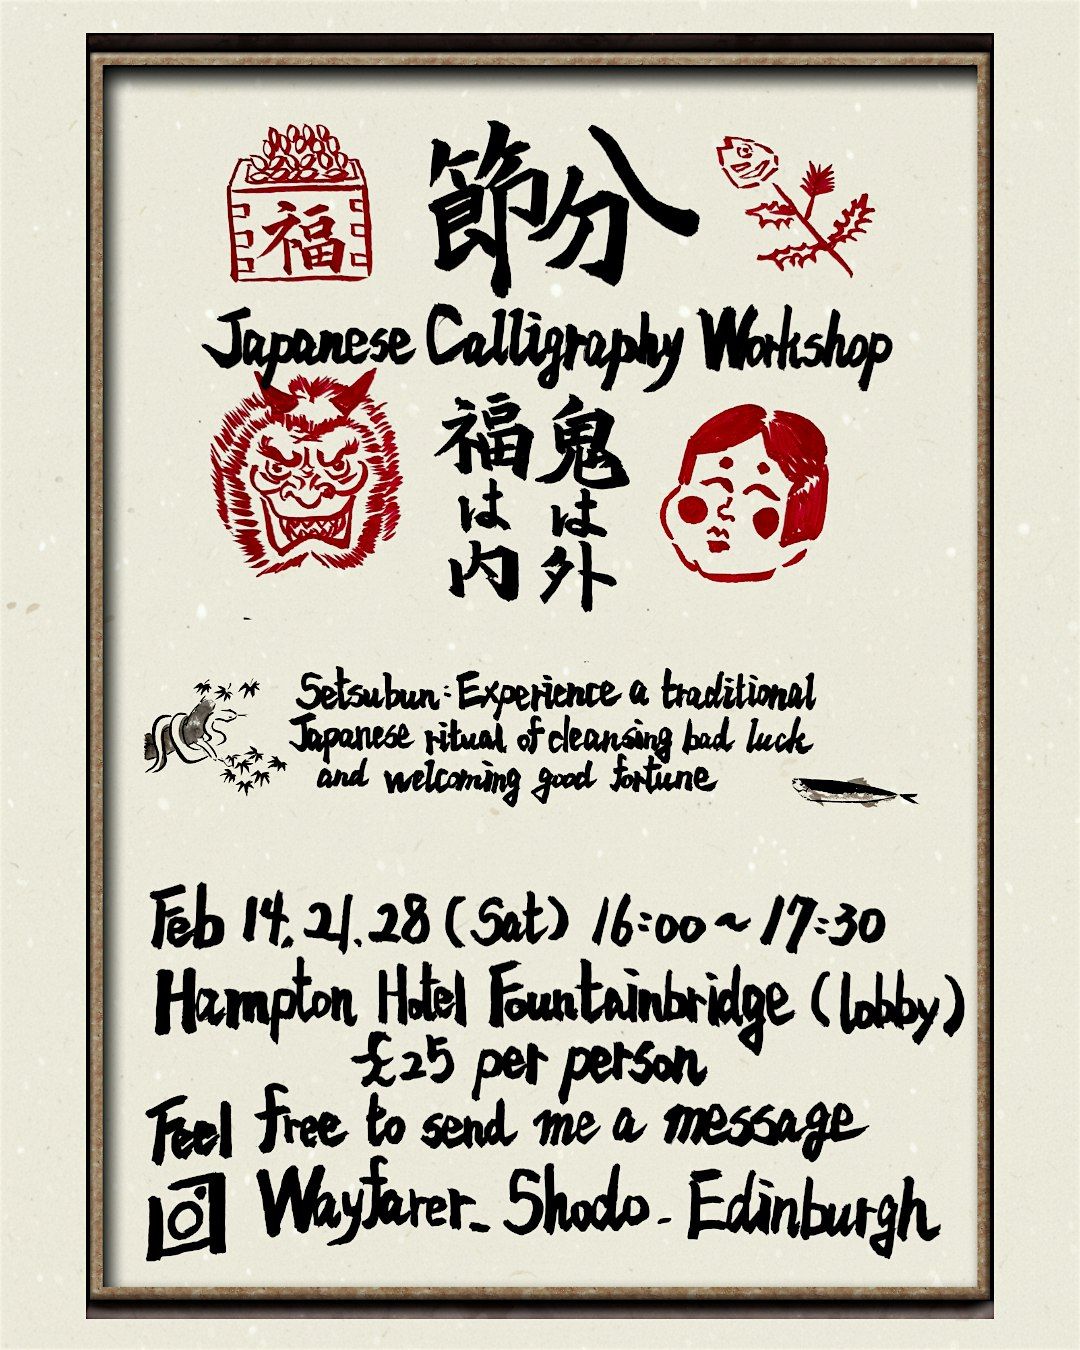 福
節分
Japanese Calligraphy Workshop
鬼は外
福は内
Setsubun: Experience a traditional
Japanese ritual of cleansing bad luck
and welcoming good fortune
Feb 14. 21. 28 (Sat) 16:00~17:30
Hampton Hotel Fountainbridge (lobby)
£25 per person
Feel free to send me a message
Wayfarer_Shodo_Edinburgh